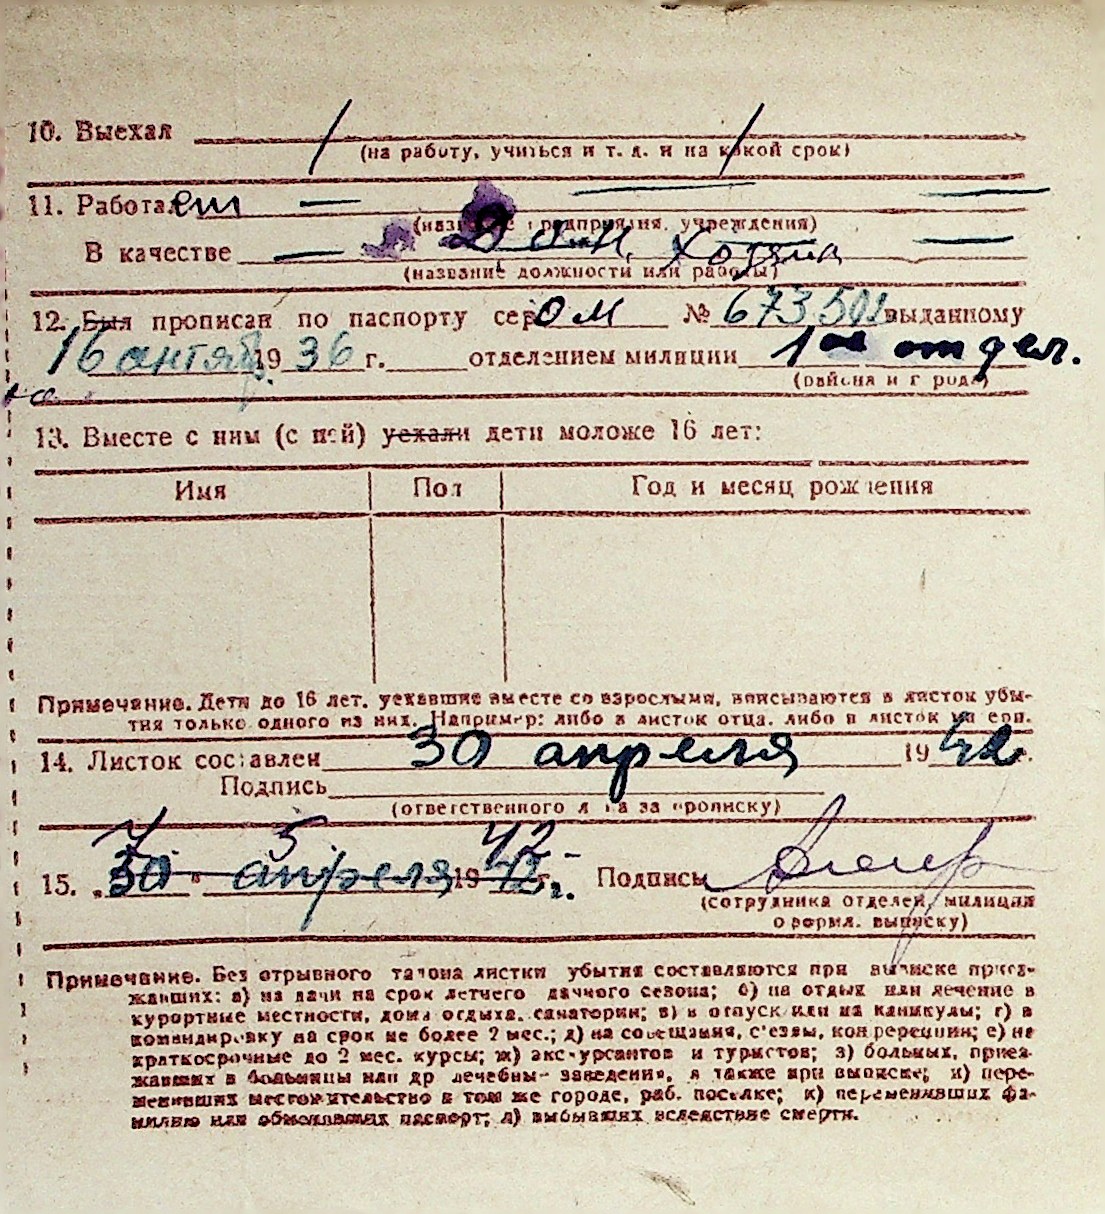 10. Выехал
(на работу, учиться и т. д. и на какой срок)
11. Работает
(название предприятия, учреждения)
В качестве Дом. хозяйка
(название должности или работы)
12. Был прописан по паспорту сер ОМ № 673501 выданному
16 сентяб. 1936 г. отделением милиции 1ое отдел.
(района и города)
13. Вместе с ним (с ней) уехали дети моложе 16 лет:
Имя Пол Год и месяц рождения
Примечание. Дети до 16 лет, уехавшие вместе со взрослыми, вписываются в листок убы-
тия только одного из них. Например: либо в листок отца, либо в листок матери.
14. Листок составлен 30 апреля 1942г.
Подпись
(ответственного лица за прописку)
7 5 42
15. „30" апреля 1942г. Подпись
(сотрудника отделен. милиции
оформл. выписку)
Примечание. Без отрывного талона листки убытия составляются при выписке приез-
жавших: а) на дачи на срок летнего дачного сезона; б) на отдых или лечение в
курортные местности, дома отдыха, санатории; в) в отпуск или на каникулы; г) в
командировку на срок не более 2 мес.; д) на совещания, с'езды, конференции; е) на
краткосрочные до 2 мес. курсы; ж) экскурсантов и туристов; з) больных, приез-
жавших в больницы или др лечебные заведения, а также при выписке; и) пере-
менивших местожительство в том же городе, раб. поселке; к) переменивших фа-
милию или обменявших паспорт; л) выбывших вследствие смерти.